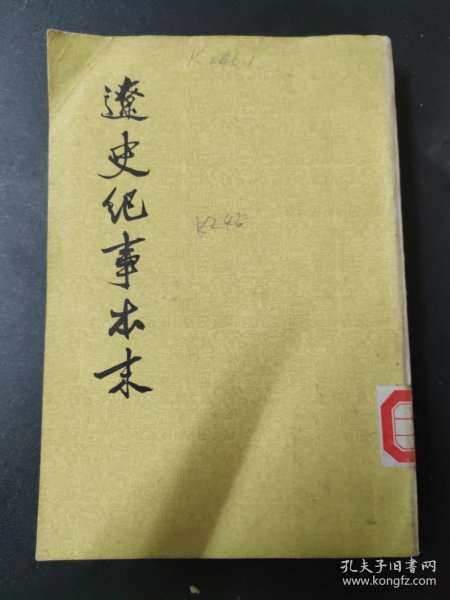 K246.1
遼史纪事本末
K246
孔夫子旧书网
www.kongfz.com